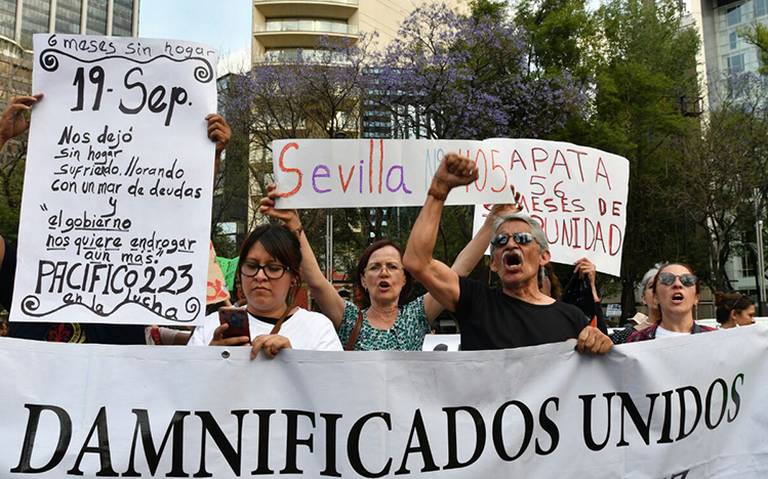 6 meses sin hogar
19-Sep.
Nos dejó
sin hogar
sufriendo, llorando
con un mar de deudas
y
"el gobierno
nos quiere endrogar
aun más."
PACIFICO 223
en la lucha
Sevilla No 405
APATA
56
MESES DE
UNIDAD
DAMNIFICADOS UNIDOS